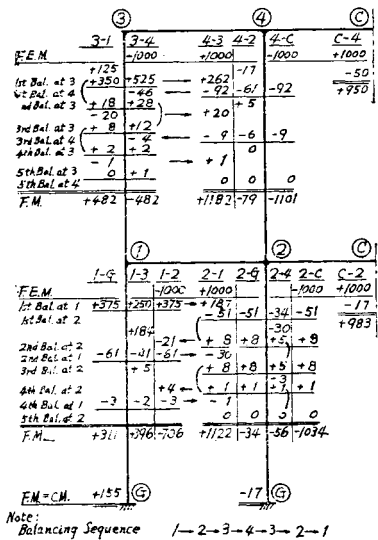 3 4 C
3-1 3-4 4-3 4-2 4-C C-4
F.E.M. -1000 +1000 -1000 +1000
+125 -17 -50
1st Bal. at 3 +350 +525 → +262 +950
1st Bal. at 4 -46 ← -92 -61 -92
2nd Bal. at 3 +18 +28 +5
-20 → +20
3rd Bal. at 3 +8 +12
3rd Bal. at 4 -4 ← -9 -6 -9
4th Bal. at 3 +2 +2 0
-1 → +1
5th Bal. at 3 0 +1
5th Bal. at 4 0 0 0
F.M. +482 -482 +1182 -79 -1101
1 2 C
1-G 1-3 1-2 2-1 2-G 2-4 2-C C-2
F.E.M. -1000 +1000 -1000 +1000
1st Bal. at 1 +375 +250 +375 → +187 -17
1st Bal. at 2 -51 -51 -34 -51 +983
+184 -30
2nd Bal. at 2 -21 ← +8 +8 +5 +8
2nd Bal. at 1 -61 -41 -61 → -30
3rd Bal. at 2 +5 +8 +8 +5 +8
-3
4th Bal. at 2 +4 ← +1 +1 +1 +1
4th Bal. at 1 -3 -2 -3 → -1
5th Bal. at 2 0 0 0 0
F.M. +311 +396 -706 +1122 -34 -56 -1034
F.M.=C.M. +155 G -17 G
Note:
Balancing Sequence 1→2→3→4→3→2→1